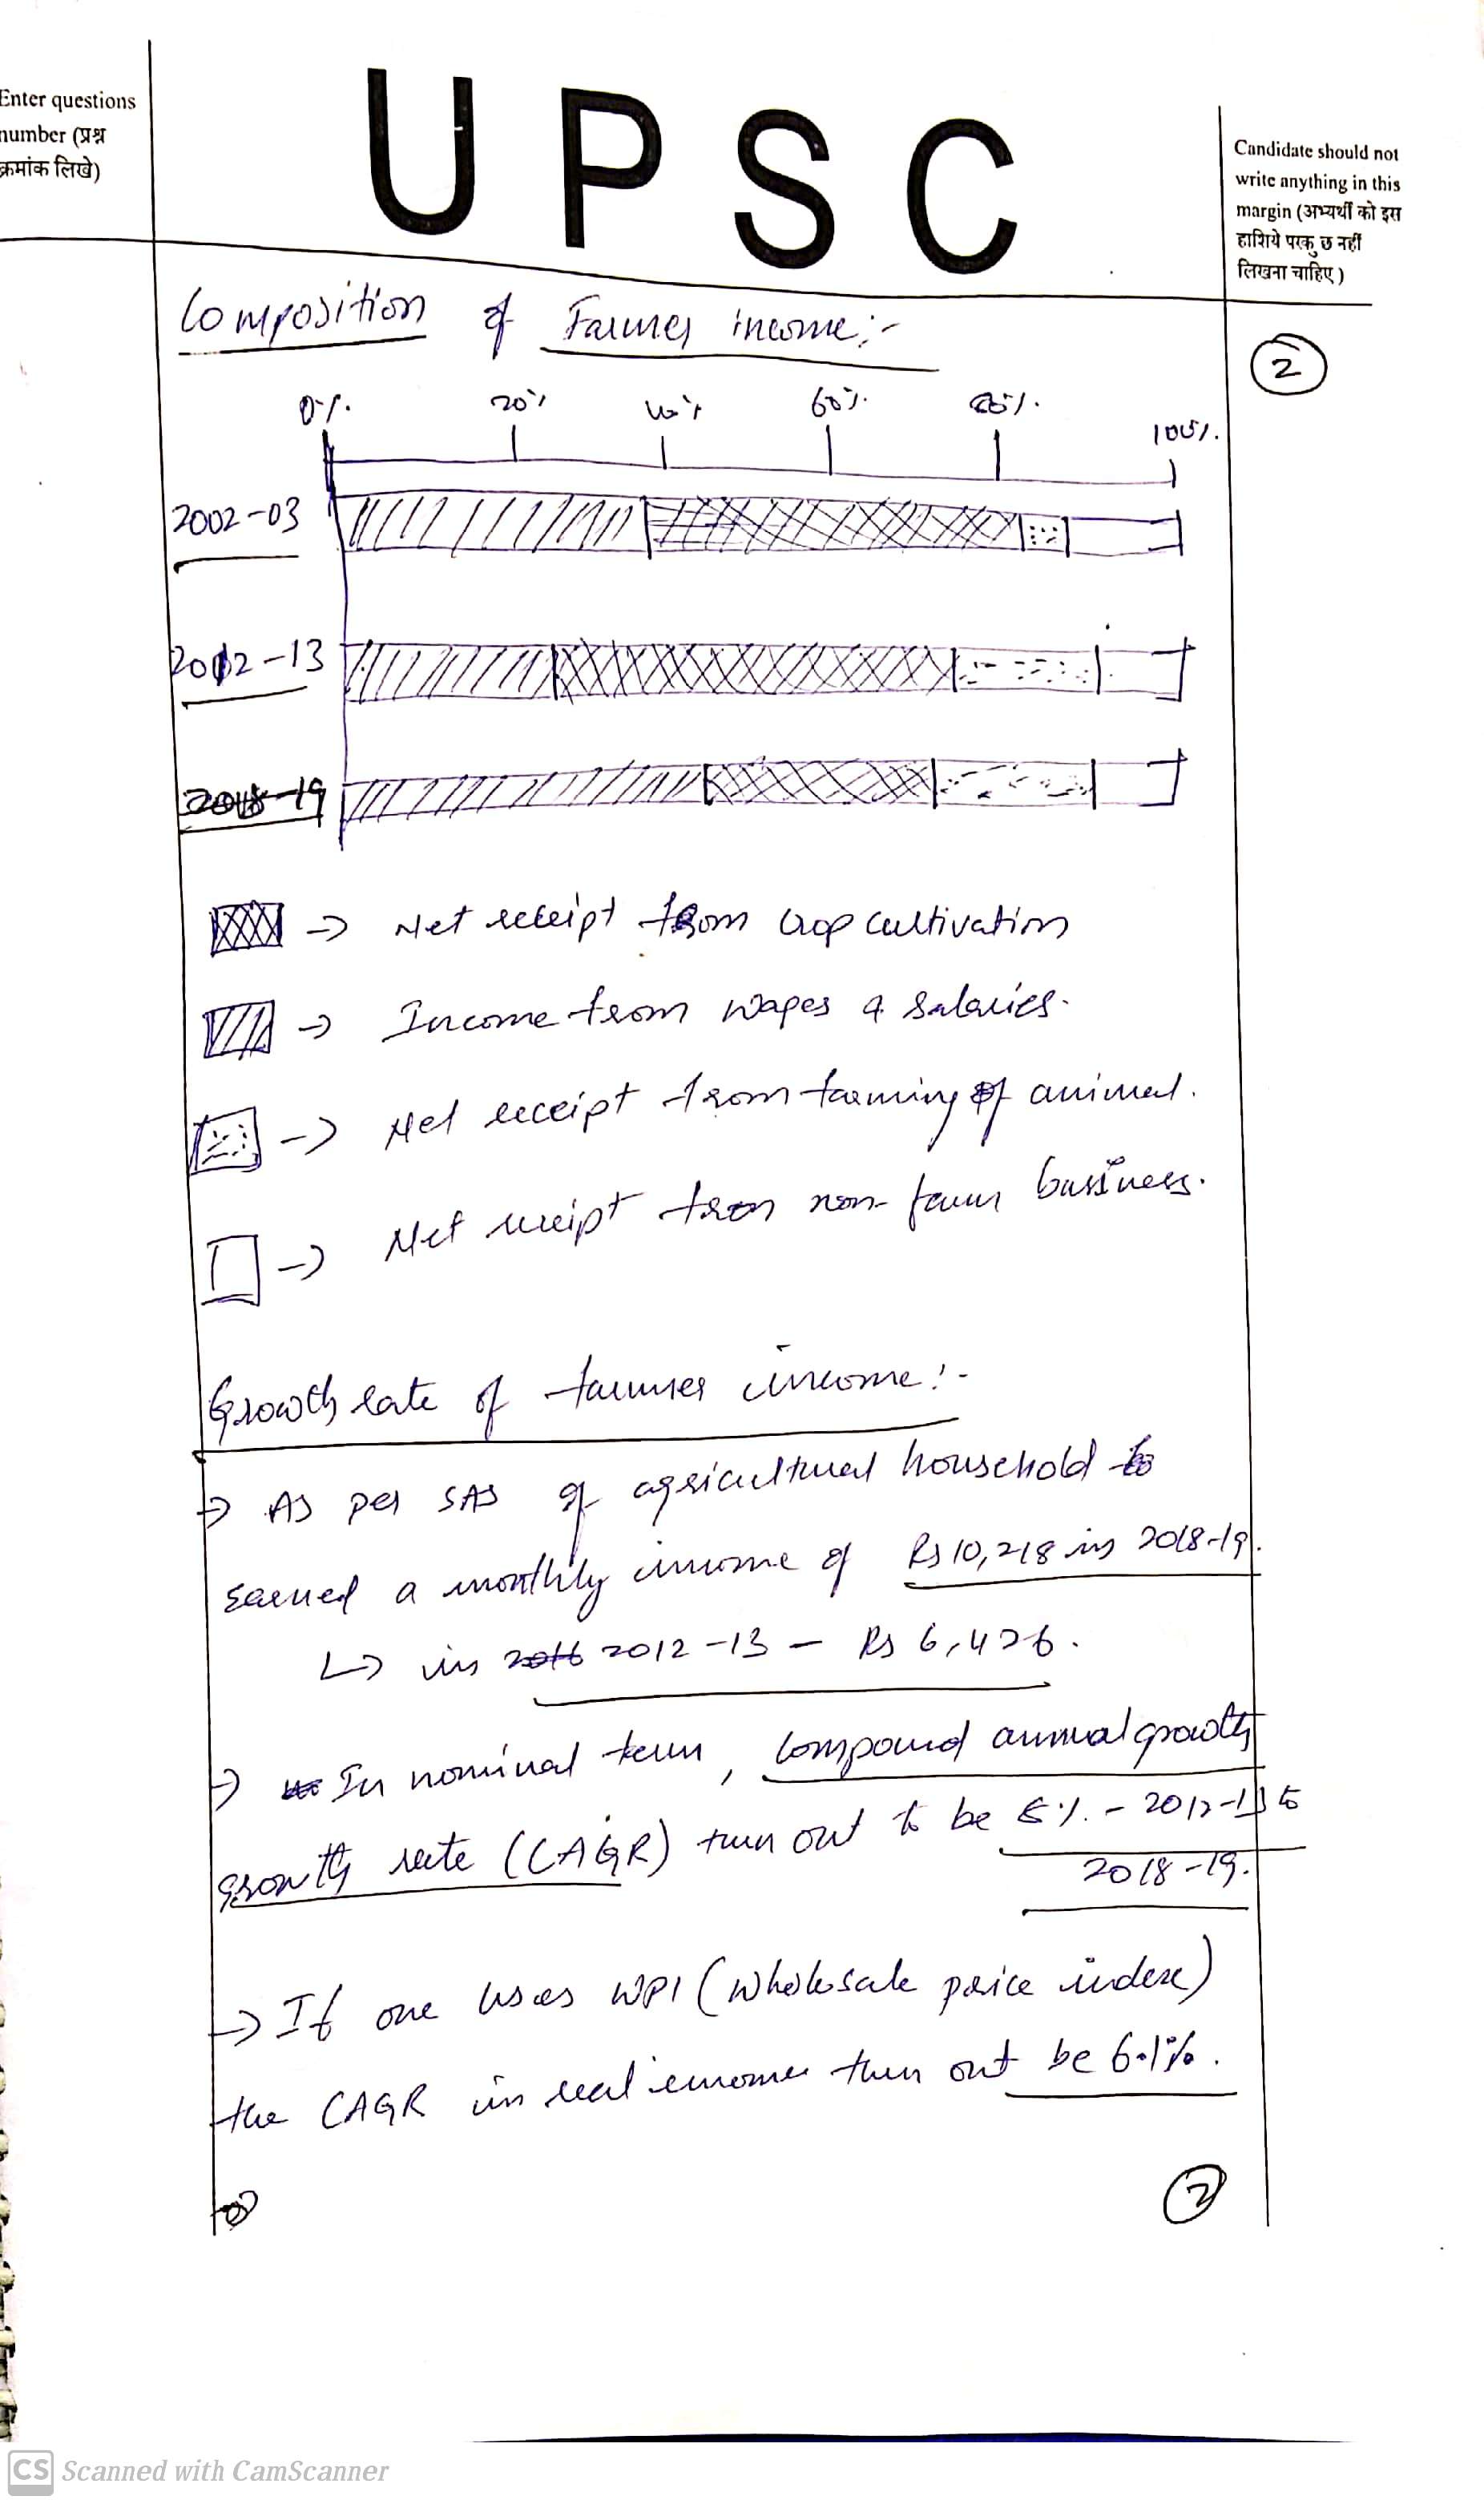 Enter questions
number (प्रश्न
क्रमांक लिखे)
UPSC
Candidate should not
write anything in this
margin (अभ्यर्थी को इस
हाशिये परकु छ नहीं
लिखना चाहिए )
Composition of Farmer income:-
2
0% 20% 40% 60% 80% 100%
2002-03
2012-13
2018-19
→ Net receipt from crop cultivation
→ Income from wages & salaries.
→ Net receipt from farming of animal.
→ Net receipt from non-farm business.
Growth rate of farmer income:-
→ As per SAS of agricultural household to
earned a monthly income of Rs 10,218 in 2018-19.
↳ in 2012-13 - Rs 6,426.
→ In nominal term, compound annual growth
growth rate (CAGR) turn out to be 8% - 2012-13 to
2018-19.
→ If one uses WPI (wholesale price index)
the CAGR in real income then out be 6.1%.
2
CS Scanned with CamScanner